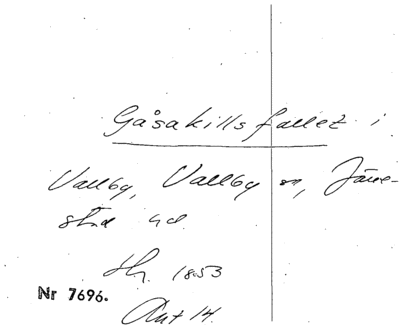 Gåsakillsfallet i
Vallby, Vallby sn, Järre-
stad hd.
1853
Nr 7696.
Ant 14.